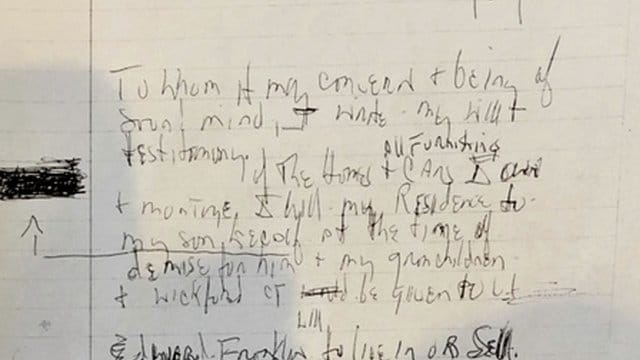 To Whom It may concern + being of
sound mind, I write my will +
testimony.
All Furnishings
Of The Homes + CARs I own
+ mortage, I will my Residence to
my son, Kecalf at the time of
demise for him + my granchildren
+ Wickford CT be given to
Will
Edward Franklin to live in OR Sell.